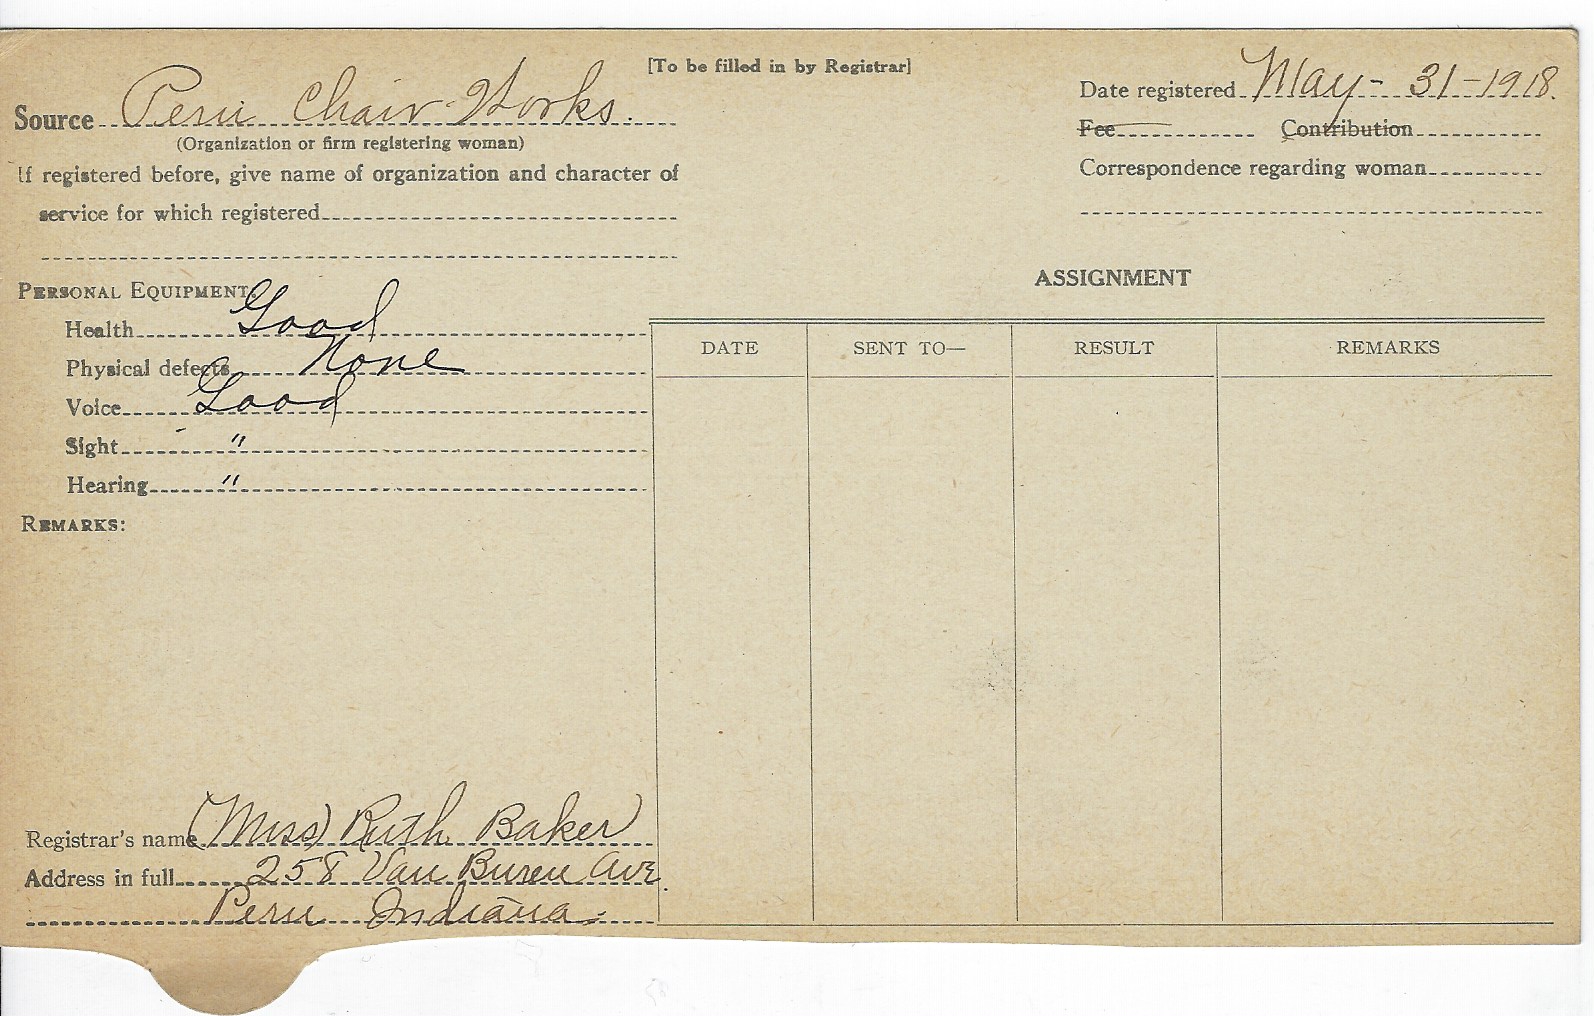 [To be filled in by Registrar]
Source Peru Chair Works.
(Organization or firm registering woman)
If registered before, give name of organization and character of
service for which registered
Date registered May - 31 - 1918.
Fee Contribution
Correspondence regarding woman
PERSONAL EQUIPMENT.
Health Good
Physical defects None
Voice Good
Sight "
Hearing "
REMARKS:
ASSIGNMENT
DATE SENT TO— RESULT REMARKS
Registrar's name (Miss) Ruth Baker
Address in full 258 Van Buren Ave.
Peru Indiana.